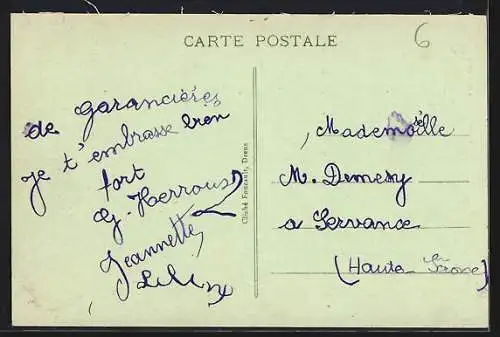 6
CARTE POSTALE
de Garancières
je t'embrasse bien
fort
G. Herrous
Jeannette
Cliché Foucault, Dreux
Mademoiselle
M. Demesy
a Servance
(Haute-Saone)